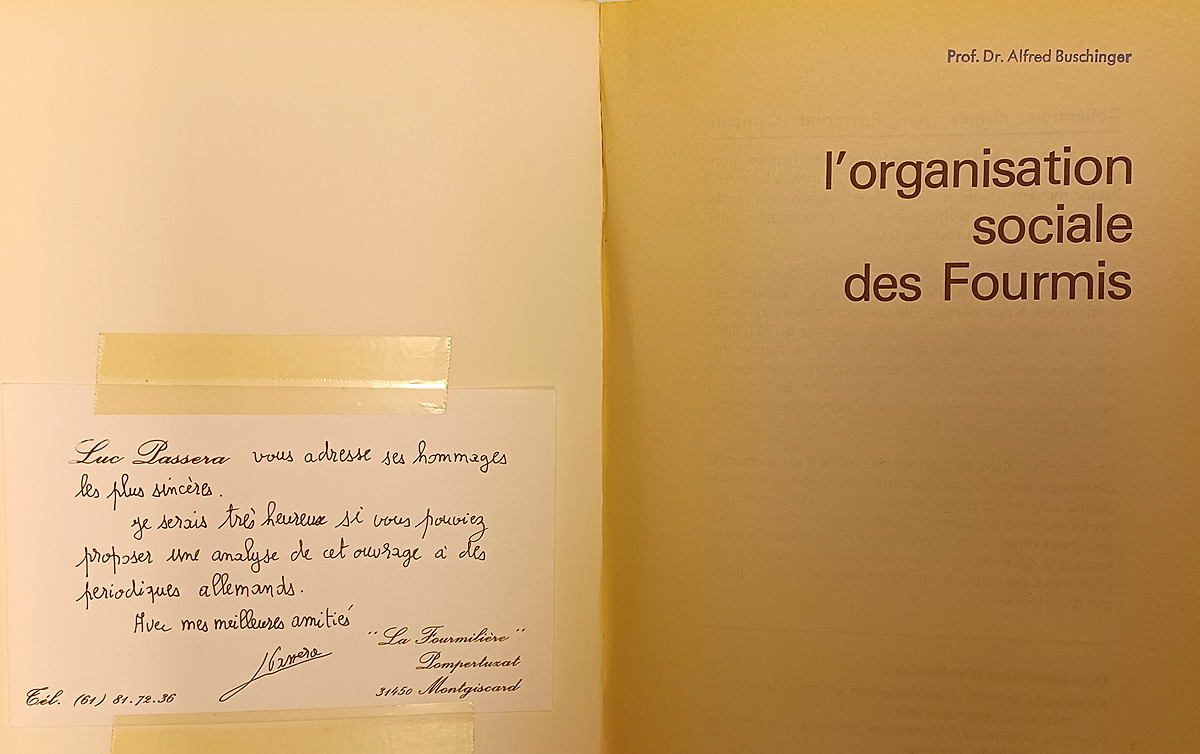 Luc Passera vous adresse ses hommages
les plus sincères.
Je serais très heureux si vous pouviez
proposer une analyse de cet ouvrage à des
periodiques allemands.
Avec mes meilleures amitiés
LPassera
"La Fourmilière"
Pompertuzat
31450 Montgiscard
Tél. (61) 81.72.36
Prof. Dr. Alfred Buschinger
l'organisation
sociale
des Fourmis